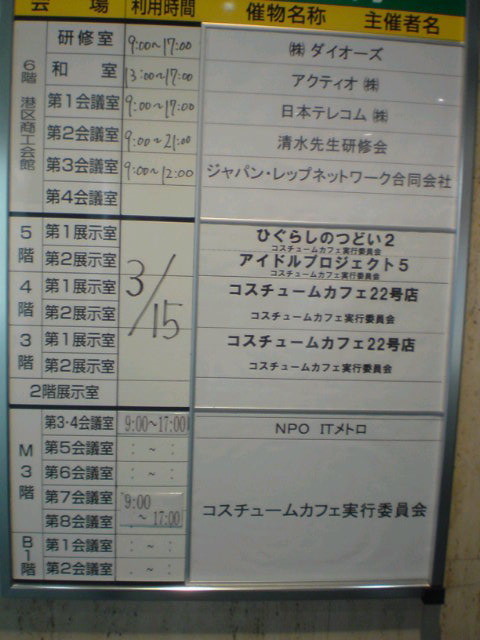 会場 利用時間 催物名称 主催者名
6階 港区商工会館
研修室 9:00~17:00 ㈱ ダイオーズ
和室 13:00~17:00 アクティオ ㈱
第1会議室 9:00~17:00 日本テレコム ㈱
第2会議室 9:00~21:00 清水先生研修会
第3会議室 9:00~12:00 ジャパン・レップネットワーク合同会社
第4会議室
5階 3/15
第1展示室 ひぐらしのつどい2
コスチュームカフェ実行委員会
第2展示室 アイドルプロジェクト5
コスチュームカフェ実行委員会
4階
第1展示室 コスチュームカフェ22号店
第2展示室 コスチュームカフェ実行委員会
3階
第1展示室 コスチュームカフェ22号店
第2展示室 コスチュームカフェ実行委員会
2階展示室
M3階
第3・4会議室 9:00~17:00 NPO ITメトロ
第5会議室 : ~ :
第6会議室 : ~ :
第7会議室 9:00
第8会議室 ~17:00 コスチュームカフェ実行委員会
B1階
第1会議室 : ~ :
第2会議室 : ~ :